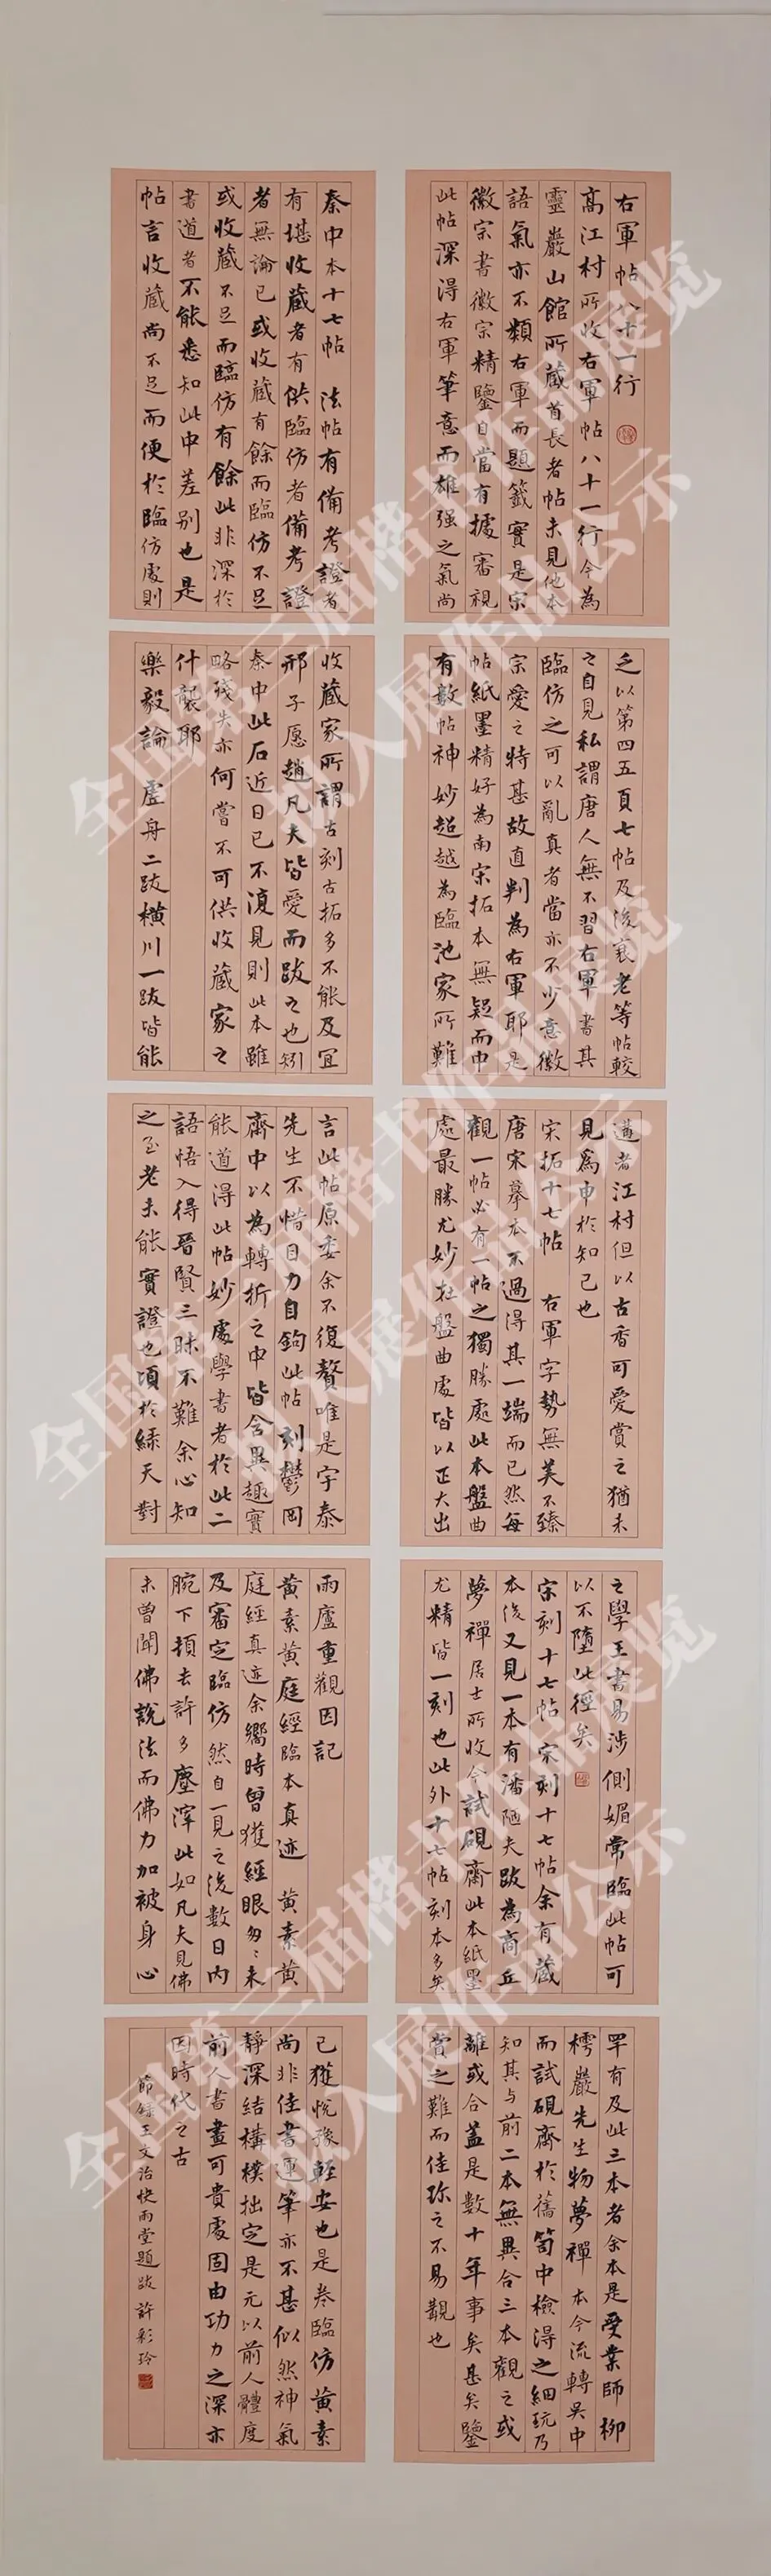 右軍帖八十一行
高江村所收右軍帖八十一行今為
靈巖山館所藏首長者帖未見他本
語氣亦不類右軍而題籤實是宋
徽宗書徽宗精鑒自當有據審視
此帖深得右軍筆意而雄强之氣尚
乏以第四五頁七帖及後衰老等帖較
之自見私謂唐人無不習右軍書其
臨仿之可以亂真者當亦不少意徽
宗愛之特甚故直判為右軍耶是
帖紙墨精好為南宋拓本無疑而中
有數帖神妙超越為臨池家所難
遘者江村但以古香可愛賞之猶未
見為申於知己也
宋拓十七帖 右軍字勢無美不臻
唐宋摹本不過得其一端而已然每
觀一帖必有一帖之獨勝處此本盤曲
處最勝尤妙在盤曲處皆以正大出
之學王書易涉側媚常臨此帖可
以不墮此徑矣
宋刻十七帖宋刻十七帖余有藏
本後又見一本有潘陋夫跋為商丘
夢禪居士所收今試硯齋此本紙墨
尤精皆一刻也此外十七帖刻本多矣
罕有及此三本者余本是受業師柳
樗巖先生物夢禪本今流轉吳中
而試硯齋於舊笥中檢得之細玩乃
知其與前二本無異合三本觀之或
離或合蓋是數十年事矣甚矣鑒
賞之難而佳珎之不易覯也
秦中本十七帖 法帖有備考證者
有堪收藏者有供臨仿者備考證
者無論已或收藏有餘而臨仿不足
或收藏不足而臨仿有餘此非深於
書道者不能悉知此中差別也是
帖言收藏尚不足而便於臨仿處則
收藏家所謂古刻古拓多不能及宜
邢子愿趙凡夫皆愛而跋之也矧
秦中此石近日已不復見則此本雖
略殘失亦何嘗不可供收藏家之
什襲耶
樂毅論 虛舟二跋橫川一跋皆能
言此帖原委余不復贅唯是字泰
先生不惜目力自鉤此帖刻鬱岡
齋中以為轉折之中皆含異趣實
能道得此帖妙處學書者於此二
語悟入得晉賢三昧不難余心知
之至老未能實證也頃於緑天對
雨廬重觀因記
黃素黃庭經臨本真迹 黃素黃
庭經真迹余嚮時曾獲經眼匆匆未
及審定臨仿然自一見之後數日內
腕下頓去許多塵滓此如凡夫見佛
未曾聞佛說法而佛力加被身心
已獲悅豫輕安也是卷臨仿黃素
尚非佳書運筆亦不甚似然神氣
靜深結構樸拙定是元以前人體度
前人書畫可貴處固由功力之深亦
因時代之古
節錄王文治快雨堂題跋 許彩玲
全国第三届楷书作品展览
拟入展作品公示
全国第三届楷书作品展览
拟入展作品公示
全国第三届楷书作品展览
拟入展作品公示